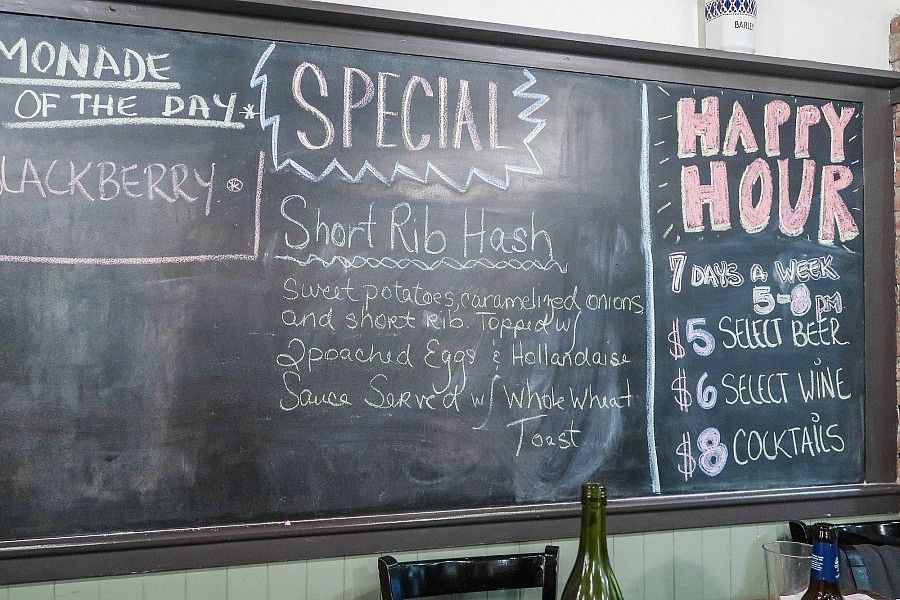 MONADE
OF THE DAY*
LACKBERRY
SPECIAL
Short Rib Hash
Sweet potatoes, caramelized onions
and short rib. Topped w/
2 poached Eggs & Hollandaise
Sauce Served w/ Whole Wheat
Toast
HAPPY
HOUR
7 DAYS A WEEK
5-8 PM
$5 SELECT BEER
$6 SELECT WINE
$8 COCKTAILS
BARLEY